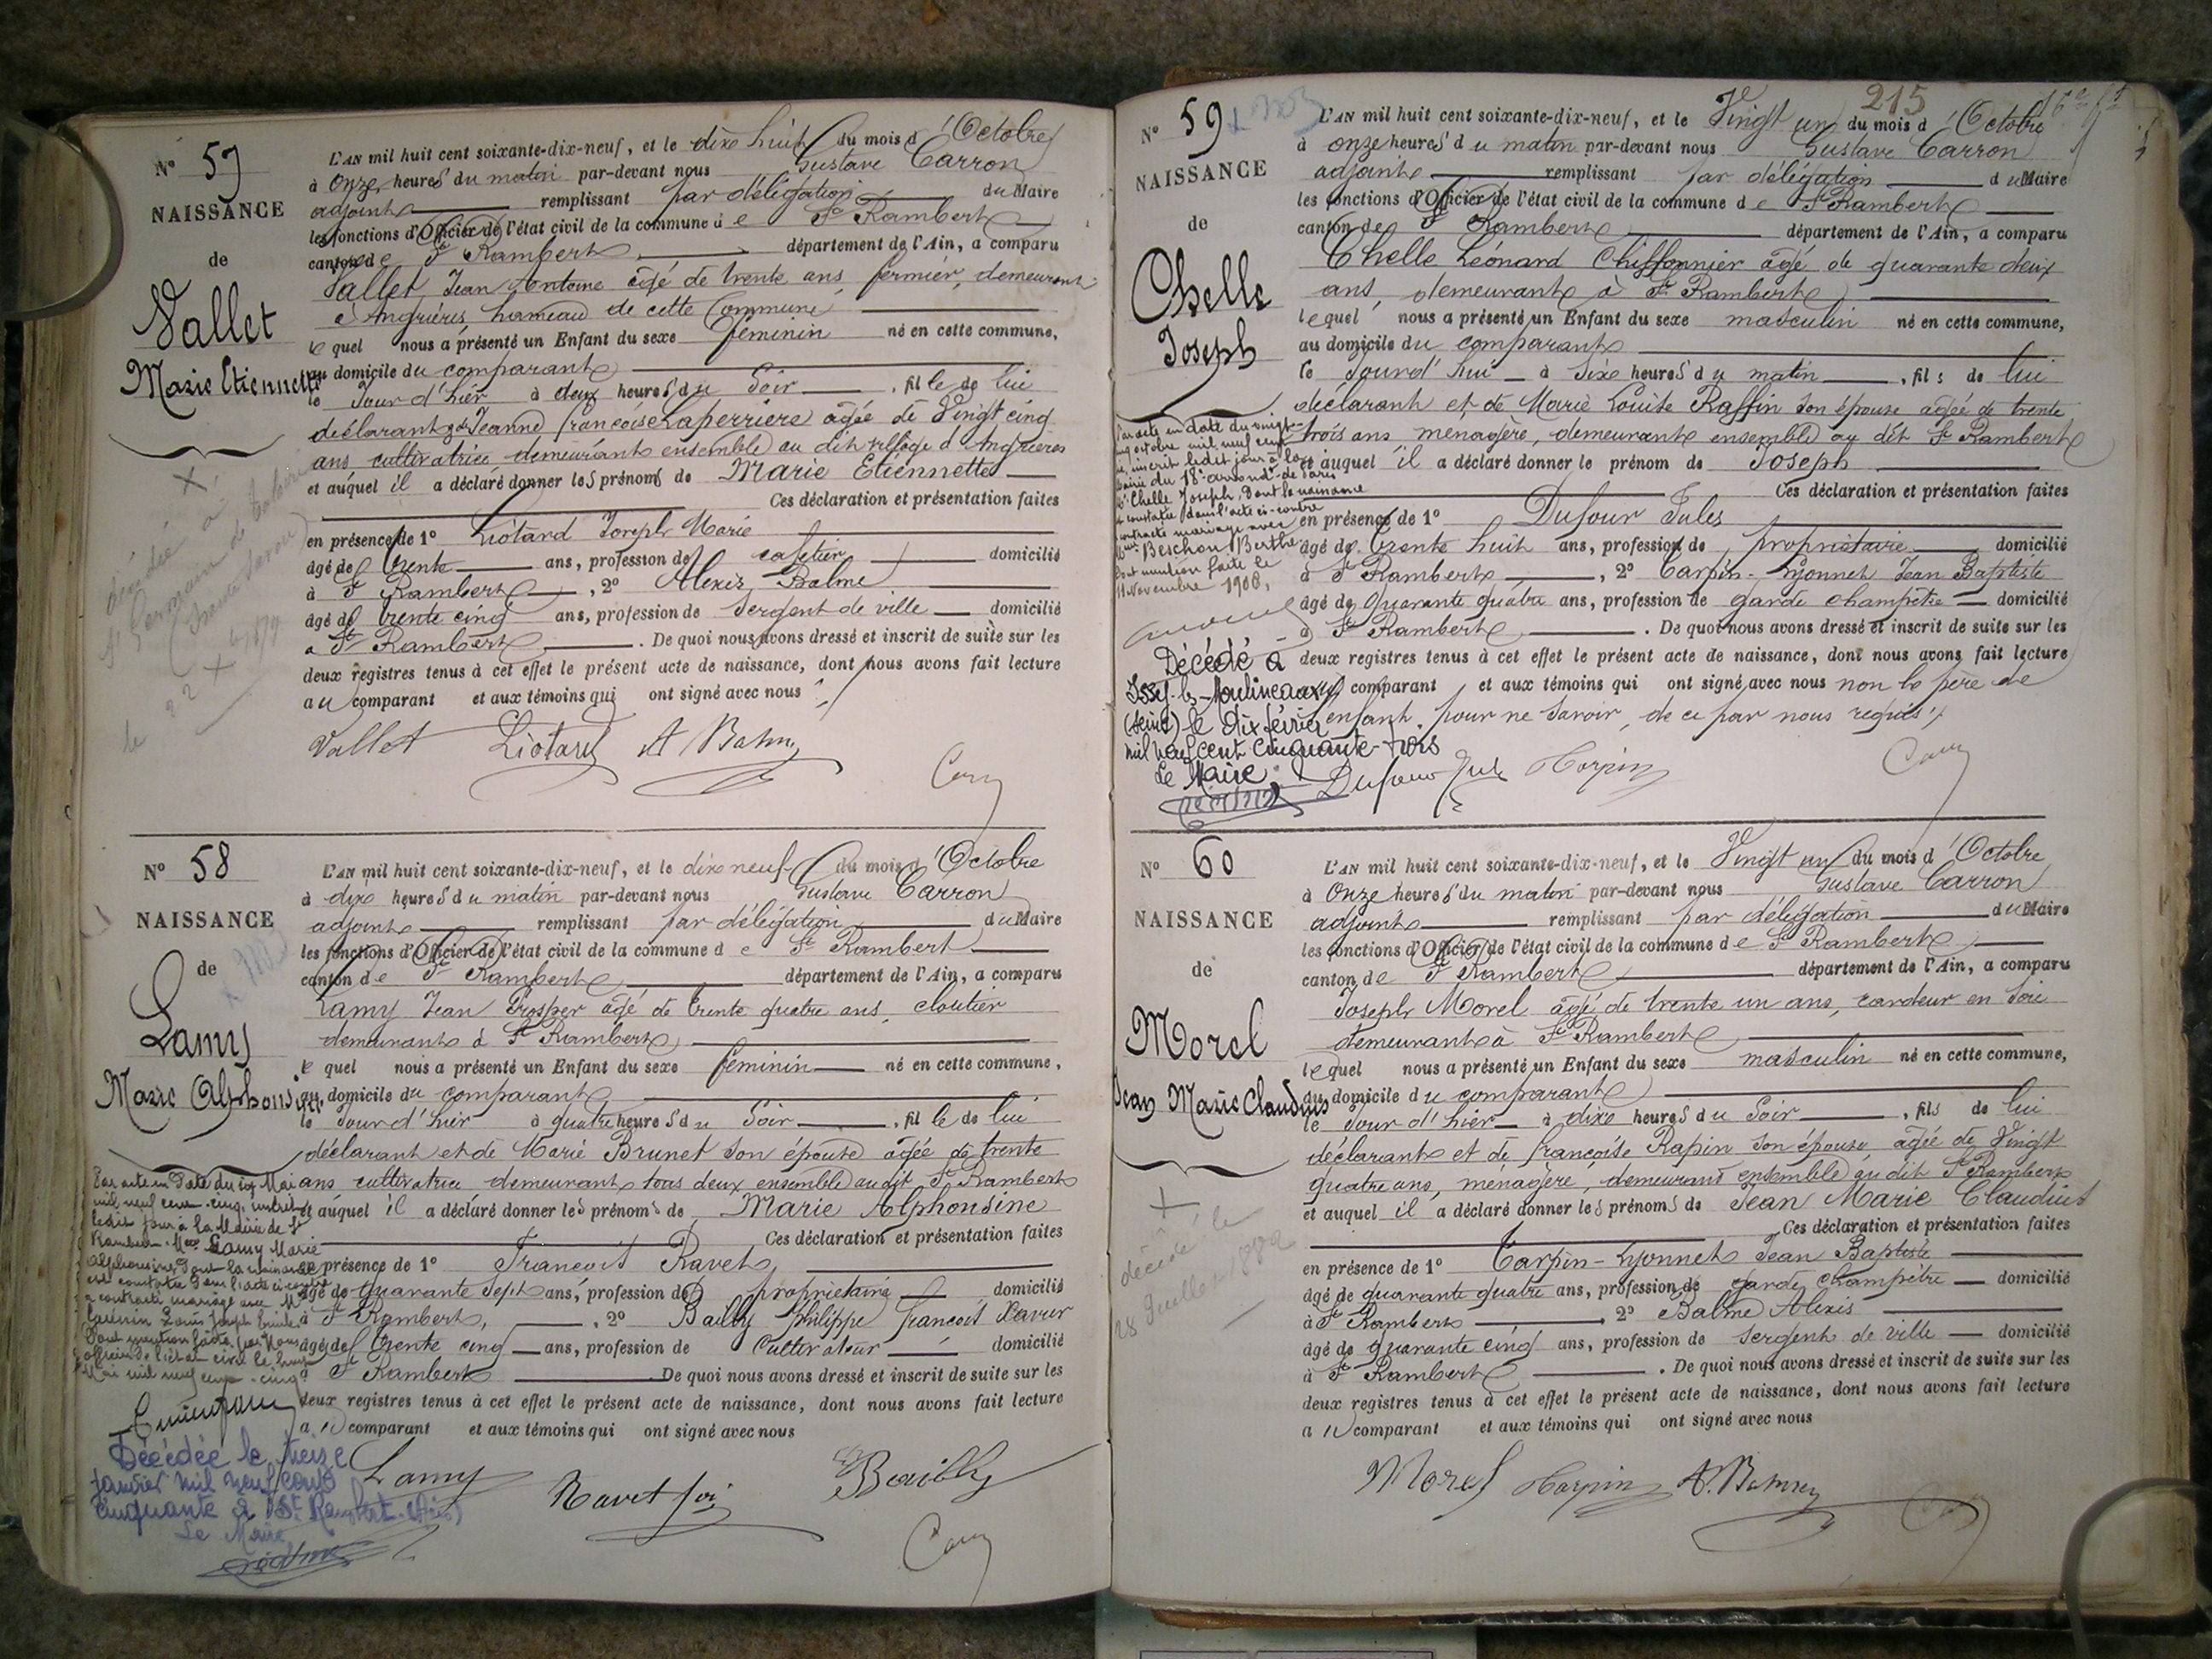 N° 57
NAISSANCE
de
Vallet
Marie Etiennette
L'AN mil huit cent soixante-dix-neuf, et le dix huit du mois d'Octobre
à Onze heures du matin par-devant nous Gustave Carron
adjoint remplissant par délégation du Maire
les fonctions d'Officier de l'état civil de la commune de St Rambert
canton de St Rambert département de l'Ain, a comparu
Vallet Jean Antoine agé de trente ans, fermier, demeurant
à Angrières hameau de cette Commune
lequel nous a présenté un Enfant du sexe féminin né en cette commune,
au domicile du comparant
le Jour d'hier à deux heures du Soir, fille de lui
déclarant et de Jeanne françoise Laperrière agée de Vingt cinq
ans cultivatrice demeurant ensemble au dit village d'Angrières
et auquel il a déclaré donner les prénoms de Marie Etiennette
Ces déclaration et présentation faites
en présence de 1° Liotard Joseph Marie
âgé de trente ans, profession de cafetier domicilié
à St Rambert, 2° Alexis Balme
âgé de trente cinq ans, profession de Sergent de ville domicilié
à St Rambert. De quoi nous avons dressé et inscrit de suite sur les
deux registres tenus à cet effet le présent acte de naissance, dont nous avons fait lecture
au comparant et aux témoins qui ont signé avec nous
décédée à
St Germain de
le 22
Vallet Liotard A Balme
N° 58
NAISSANCE
de
Lamy
Marie Alphonsine
L'AN mil huit cent soixante-dix-neuf, et le dix neuf du mois d'Octobre
à dix heures du matin par-devant nous Gustave Carron
adjoint remplissant par délégation du Maire
les fonctions d'Officier de l'état civil de la commune de St Rambert
canton de St Rambert département de l'Ain, a comparu
Lamy Jean Prosper agé de trente quatre ans, cloutier
demeurant à St Rambert
lequel nous a présenté un Enfant du sexe féminin né en cette commune,
au domicile du comparant
le Jour d'hier à quatre heures du Soir, fille de lui
déclarant et de Marie Brunet son épouse agée de trente
ans cultivatrice demeurant tous deux ensemble au dit St Rambert
et auquel il a déclaré donner les prénoms de Marie Alphonsine
Ces déclaration et présentation faites
en présence de 1° François Ravet
âgé de quarante Sept ans, profession de propriétaire domicilié
à St Rambert, 2° Bailly Philippe françois Xavier
âgé de trente cinq ans, profession de Cultivateur domicilié
St Rambert De quoi nous avons dressé et inscrit de suite sur les
deux registres tenus à cet effet le présent acte de naissance, dont nous avons fait lecture
au comparant et aux témoins qui ont signé avec nous
Par acte en Date du Mai
mil neuf cent cinq, inscrit
ledit jour à la Mairie de St
Rambert Lamy Marie
Alphonsine, Dont la naissance
est constatée dans l'acte ci-contre
a contracté mariage avec Mr
Louis Joseph
Dont mention faite par Nous
officier de l'état civil le
Mai mil neuf cent cinq
Décédée le treize
janvier mil neuf cent
cinquante à St Rambert (Ain)
Le Maire
Lamy Ravet foi Bailly
215
N° 59
NAISSANCE
de
Chelle
Joseph
L'AN mil huit cent soixante-dix-neuf, et le Vingt un du mois d'Octobre
à onze heures du matin par-devant nous Gustave Carron
adjoint remplissant par délégation du Maire
les fonctions d'Officier de l'état civil de la commune de St Rambert
canton de St Rambert département de l'Ain, a comparu
Chelle Léonard Chiffonnier agé de quarante deux
ans, demeurant à St Rambert
lequel nous a présenté un Enfant du sexe masculin né en cette commune,
au domicile du comparant
le Jourd'hui à Six heures du matin, fils de lui
déclarant et de Marie Louise Raffin son épouse agée de trente
trois ans ménagère, demeurant ensemble au dit St Rambert
et auquel il a déclaré donner le prénom de Joseph
Ces déclaration et présentation faites
en présence de 1° Dufour Jules
âgé de trente huit ans, profession de propriétaire domicilié
à St Rambert, 2° Carpin-Lyonnet Jean Baptiste
âgé de quarante quatre ans, profession de garde champêtre domicilié
à St Rambert. De quoi nous avons dressé et inscrit de suite sur les
deux registres tenus à cet effet le présent acte de naissance, dont nous avons fait lecture
au comparant et aux témoins qui ont signé avec nous non le père de
l'enfant, pour ne savoir, de ce par nous requis
Par acte en date du vingt-
cinq octobre mil neuf cent
inscrit ledit jour à la
mairie du 18e arrondt de Paris
Chelle Joseph, dont la naissance
est constatée dans l'acte ci-contre
contracte mariage avec
Beschon Berthe
Dont mention faite le
11 Novembre 1908,
Décédé à
Issy-les-Moulineaux
(Seine) le dix février
mil neuf cent cinquante-trois
Le Maire,
Dufour Jules Carpin
N° 60
NAISSANCE
de
Morel
Jean Marie Claudius
L'AN mil huit cent soixante-dix-neuf, et le Vingt un du mois d'Octobre
à Onze heures du matin par-devant nous Gustave Carron
adjoint remplissant par délégation du Maire
les fonctions d'Officier de l'état civil de la commune de St Rambert
canton de St Rambert département de l'Ain, a comparu
Joseph Morel agé de trente un ans, cardeur en Soie
demeurant à St Rambert
lequel nous a présenté un Enfant du sexe masculin né en cette commune,
au domicile du comparant
le Jour d'hier à dix heures du Soir, fils de lui
déclarant et de françoise Rapin son épouse agée de Vingt
quatre ans, ménagère, demeurant ensemble au dit St Rambert
et auquel il a déclaré donner les prénoms de Jean Marie Claudius
Ces déclaration et présentation faites
en présence de 1° Carpin-Lyonnet Jean Baptiste
âgé de quarante quatre ans, profession de garde champêtre domicilié
à St Rambert, 2° Balme Alexis
âgé de quarante cinq ans, profession de sergent de ville domicilié
à St Rambert. De quoi nous avons dressé et inscrit de suite sur les
deux registres tenus à cet effet le présent acte de naissance, dont nous avons fait lecture
au comparant et aux témoins qui ont signé avec nous
décédé le
28 Juillet
Morel Carpin A. Balme